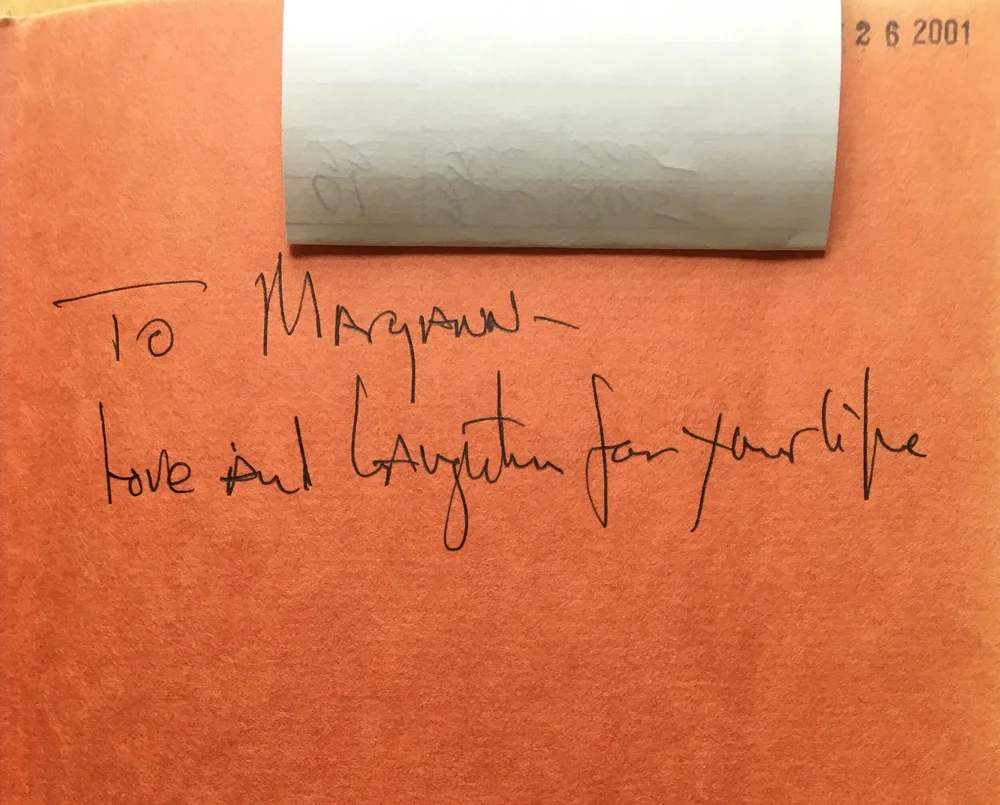 26 2001
To Maryann-
Love and Laughter for your life